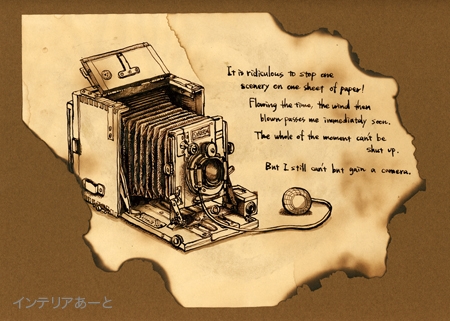 It is ridiculous to stop one
scenery on one sheet of paper!
Flowing the time, the wind then
blown passes me immediately soon.
The whole of the moment can't be
shut up.
But I still can't but gain a camera.
インテリアあーと